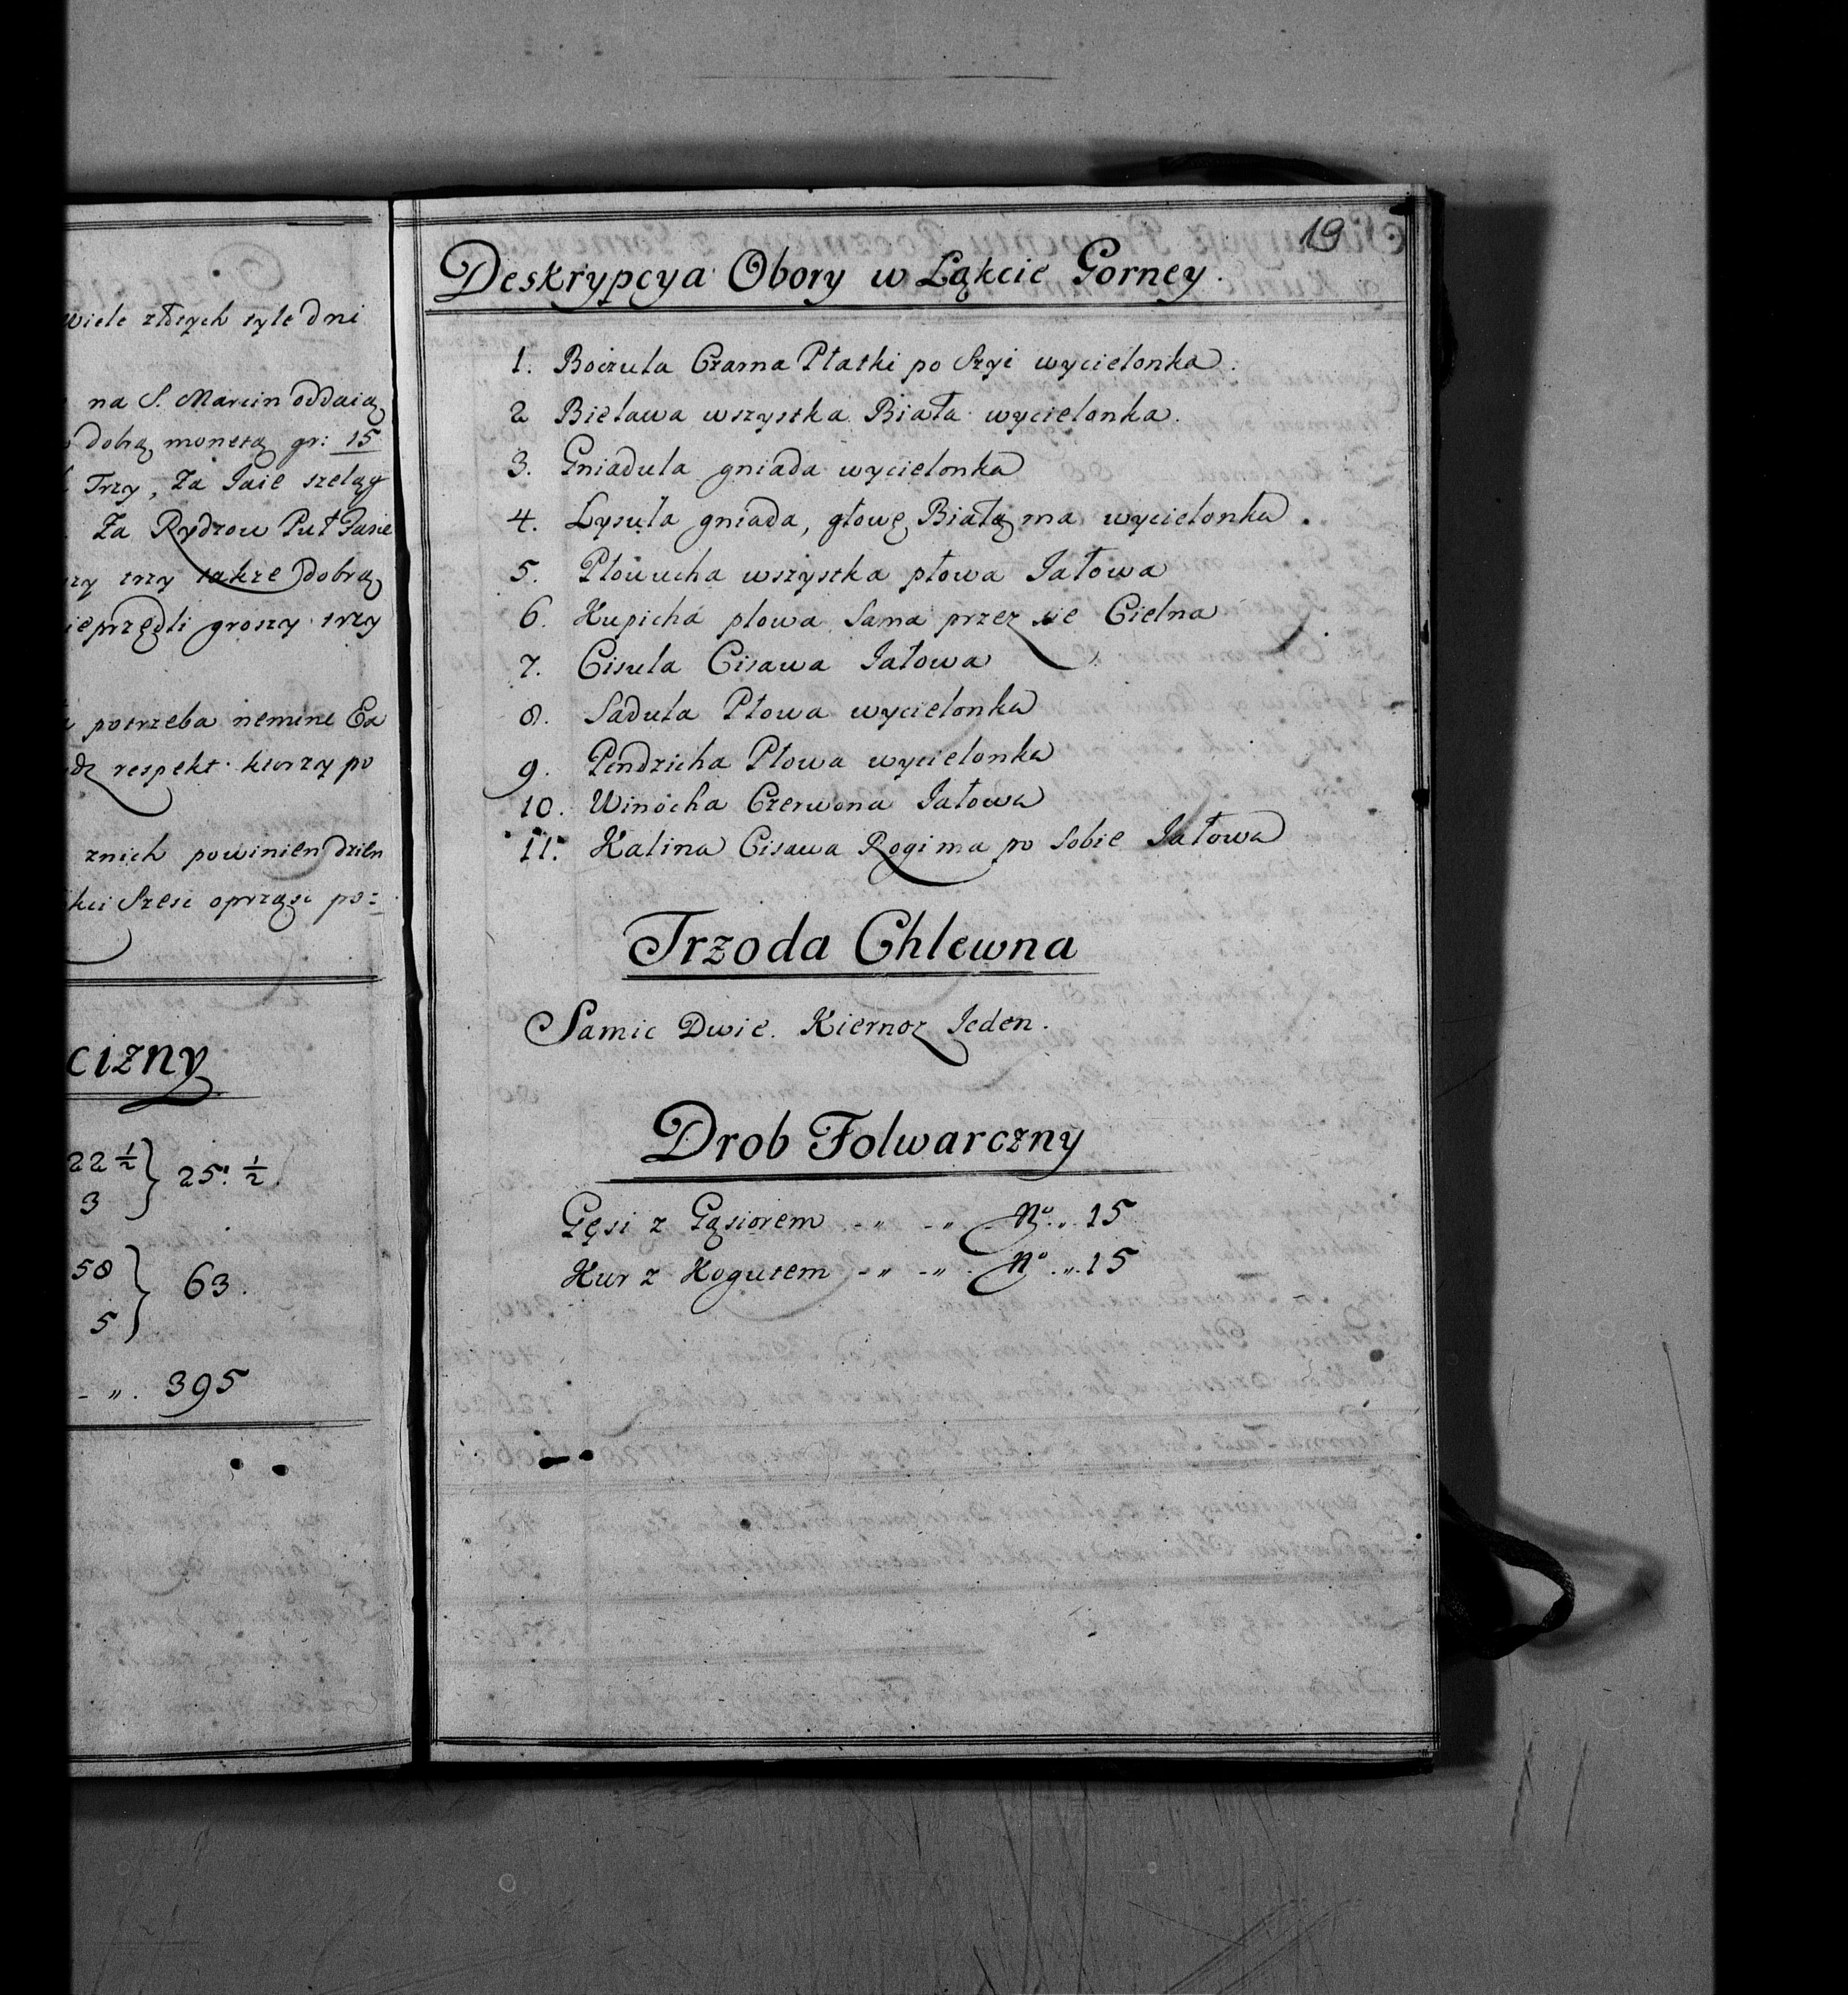 wiele złotych tyle dni
na S. Marcin oddaią
dobrą monetą gr: 15
Trzy, Za Jaie szeląg
Za Rydzow Puł Jasie
trzy także dobrą
groszy trzy
potrzeba nemine Ex
respekt. ktorzy po
znich powinien dzien
Szesc oprząsc po=
cizny
22 1/2 } 25. 1/2.
3
58 } 63.
5
- ". 395
19
Deskrypcya Obory w Łąkcie Gorney.
1. Boczula Czarna Płatki po Szyi wycielonka.
2 Bielawa wszystka Biała wycielonka.
3. Gniadula gniada wycielonka
4. Łysula gniada, głowę Białą ma wycielonka.
5. Płowucha wszystka płowa Jałowa
6. Kupicha plowa Sama przez sie Cielna
7. Cisula Cisawa Jałowa
8. Sadula Płowa wycielonka
9. Pendzicha Płowa wycielonka
10. Winocha Czerwona Jałowa
11. Kalina Cisawa Rogi ma po Sobie Jałowa
Trzoda Chlewna
Samic Dwie. Kiernoz Jeden.
Drob Folwarczny
Gęsi z Gąsiorem - " - " - No. . 15
Kur z Kogutem - " - " . No . ". 15